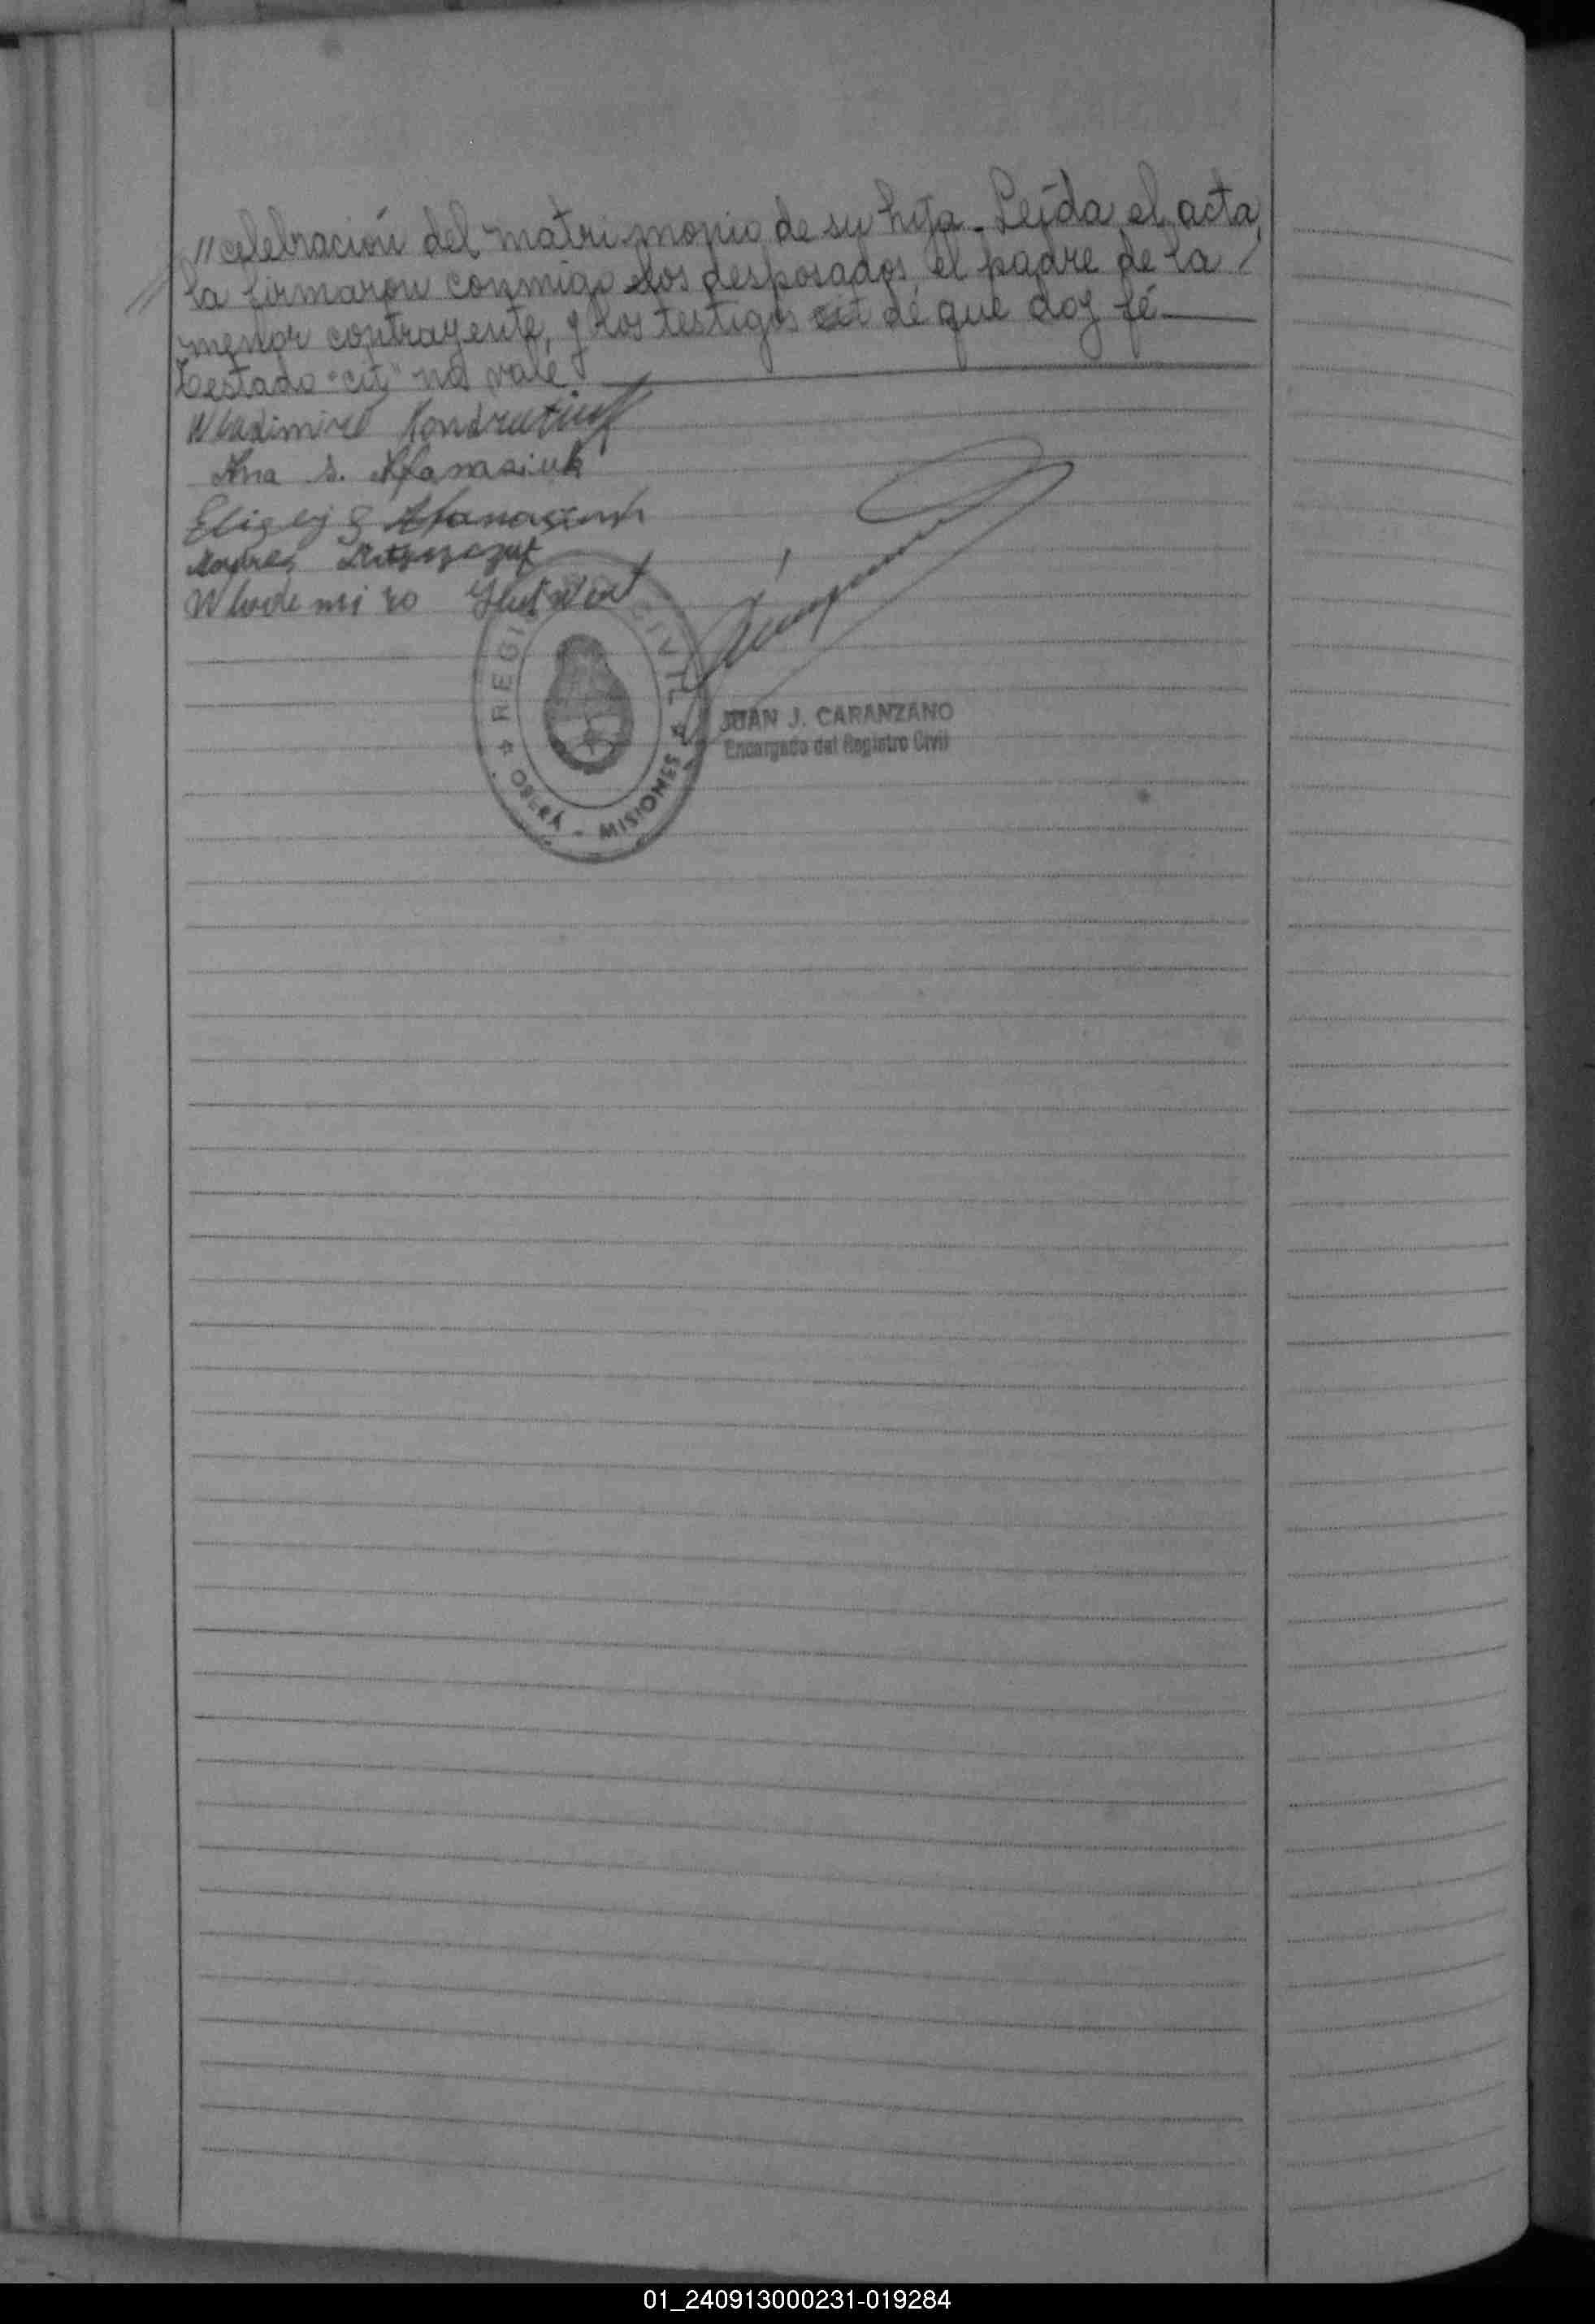 // celebración del matrimonio de su hija. Leída el acta,
la firmaron conmigo los desposados, el padre de la /
menor contrayente, y los testigos cit de que doy fé
Testado "cit" no vale
Wladimiro Kondratiuk
Ana S. Afanasiuk
Elizej S Afanasiuk
Andres
Wlodemiro
REGISTRO CIVIL
OBERÁ - MISIONES
JUAN J. CARANZANO
Encargado del Registro Civil
01_240913000231-019284